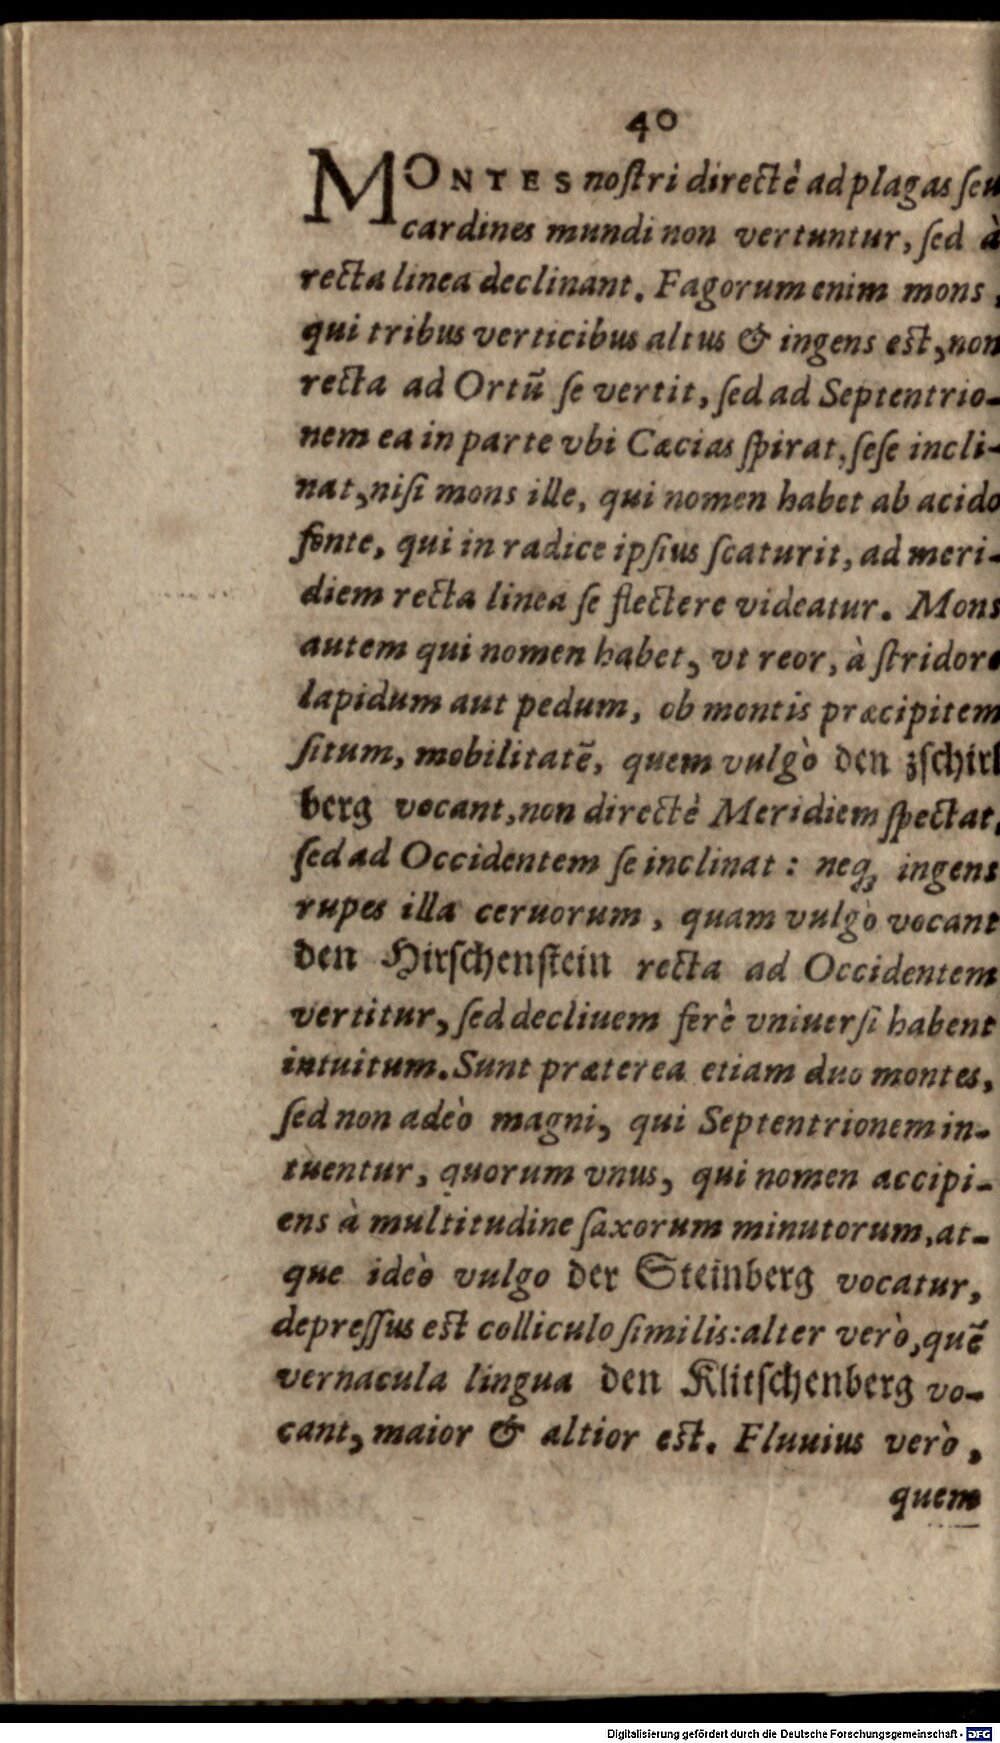 40
MONTES noſtri directè ad plagas ſeu
cardines mundi non vertuntur, ſed à
recta linea declinant. Fagorum enim mons,
qui tribus verticibus altus & ingens est, non
recta ad Ortũ ſe vertit, ſed ad Septentrio-
nem ea in parte vbi Cæcias ſpirat, ſeſe incli-
nat, niſi mons ille, qui nomen habet ab acido
fonte, qui in radice ipſius ſcaturit, ad meri-
diem recta linea ſe flectere videatur. Mons
autem qui nomen habet, vt reor, à ſtridore
lapidum aut pedum, ob montis præcipitem
ſitum, mobilitatẽ, quem vulgò den zſchirl
berg vocant, non directè Meridiem ſpectat,
ſed ad Occidentem ſe inclinat: neq; ingens
rupes illa ceruorum, quam vulgò vocant
den Hirſchenſtein recta ad Occidentem
vertitur, ſed decliuem ferè vniuerſi habent
intuitum. Sunt præterea etiam duo montes,
ſed non adeò magni, qui Septentrionem in-
tuentur, quorum vnus, qui nomen accipi-
ens à multitudine ſaxorum minutorum, at-
que ideò vulgo der Steinberg vocatur,
depreſſus est colliculo ſimilis: alter verò, quẽ
vernacula lingua den Klitſchenberg vo-
cant, maior & altior est. Fluuius verò,
quem
Digitalisierung gefördert durch die Deutsche Forschungsgemeinschaft - DFG